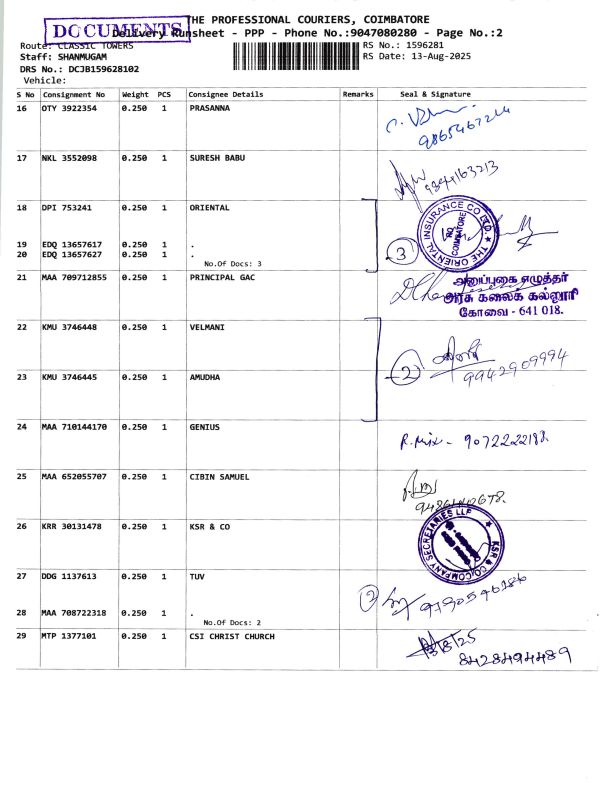 DOCUMENTS
THE PROFESSIONAL COURIERS, COIMBATORE
Delivery Runsheet - PPP - Phone No.:9047080280 - Page No.:2
Route: CLASSIC TOWERS
RS No.: 1596281
Staff: SHANMUGAM
RS Date: 13-Aug-2025
DRS No.: DCJB159628102
Vehicle:
S No Consignment No Weight PCS Consignee Details Remarks Seal & Signature
16 OTY 3922354 0.250 1 PRASANNA
9865467214
17 NKL 3552098 0.250 1 SURESH BABU
9344163213
18 DPI 753241 0.250 1 ORIENTAL
THE ORIENTAL INSURANCE CO LTD.
RO
COIMBATORE
3
19 EDQ 13657617 0.250 1 .
20 EDQ 13657627 0.250 1 .
No.Of Docs: 3
21 MAA 709712855 0.250 1 PRINCIPAL GAC
அனுப்புகை எழுத்தர்
அரசு கலைக் கல்லூரி
கோவை - 641 018.
22 KMU 3746448 0.250 1 VELMANI
2
9942909994
23 KMU 3746445 0.250 1 AMUDHA
24 MAA 710144170 0.250 1 GENIUS
9072222182
25 MAA 652055707 0.250 1 CIBIN SAMUEL
26 KRR 30131478 0.250 1 KSR & CO
KSR & CO COMPANY SECRETARIES LLP
27 DDG 1137613 0.250 1 TUV
2
28 MAA 708722318 0.250 1 .
No.Of Docs: 2
29 MTP 1377101 0.250 1 CSI CHRIST CHURCH
8428494489